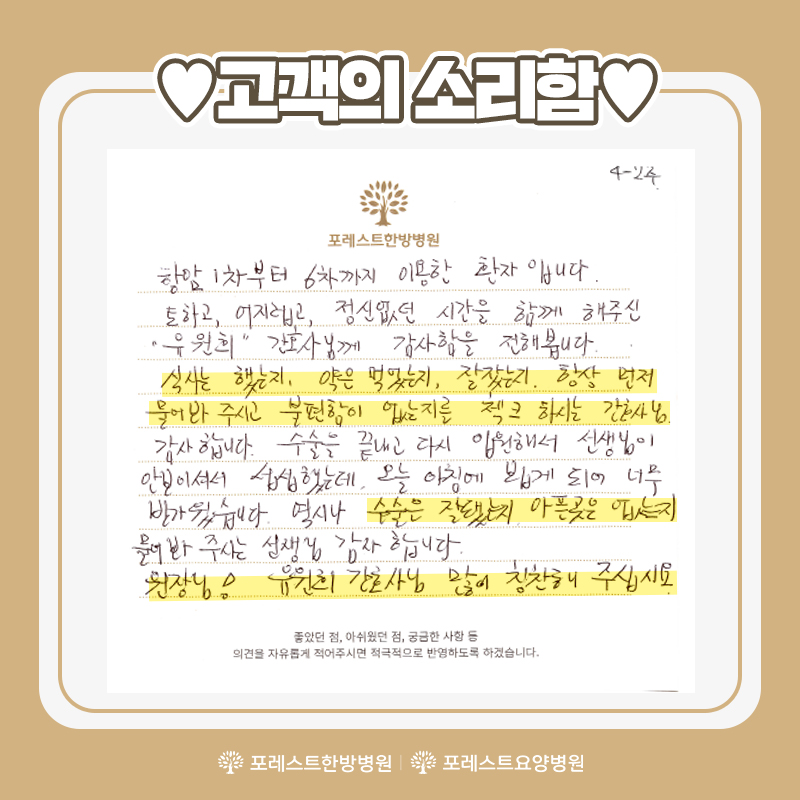 ♥고객의 소리함♥
4-2주
포레스트한방병원
항암 1차부터 6차까지 이용한 환자입니다.
토하고, 어지럽고, 정신없던 시간을 함께 해주신
"유원희" 간호사님께 감사함을 전해봅니다.
식사는 했는지, 약은 먹었는지, 잘잤는지. 항상 먼저
물어봐 주시고 불편함이 없는지를 첵크 하시는 간호사님.
감사합니다. 수술을 끝내고 다시 입원해서 선생님이
안보이셔서 섭섭했는데, 오늘 아침에 뵙게 되어 너무
반가웠습니다. 역시나 수술은 잘됐는지 아픈곳은 없는지
물어봐 주시는 선생님 감사합니다.
원장님은 유원희 간호사님 많이 칭찬해 주십시요.
좋았던 점, 아쉬웠던 점, 궁금한 사항 등
의견을 자유롭게 적어주시면 적극적으로 반영하도록 하겠습니다.
포레스트한방병원 | 포레스트요양병원